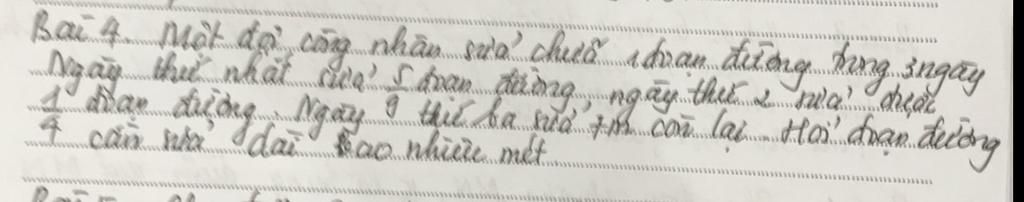 Bài 4. Một đội công nhân sửa chữa 1 đoạn đường trong 3 ngày
Ngày thứ nhất sửa 5/9 đoạn đường, ngày thứ 2 sửa được
1/4 đoạn đường. Ngày thứ ba sửa 7m còn lại. Hỏi đoạn đường
cần sửa dài bao nhiêu mét